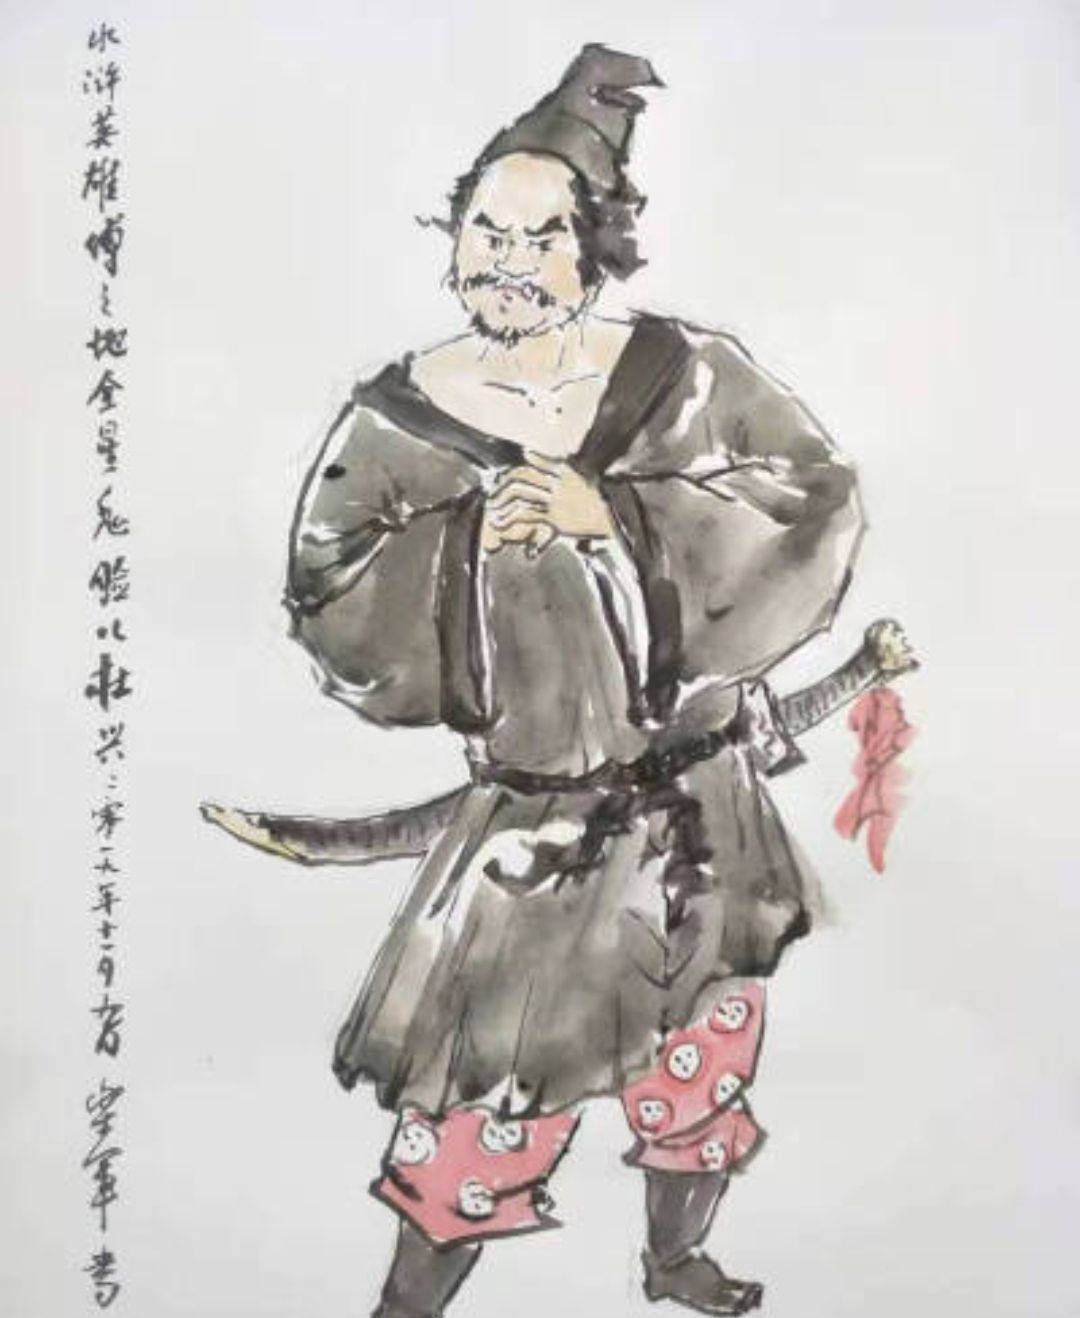 水浒英雄傅之地全星鬼脸儿杜兴二零一九年十一月九日宗军书